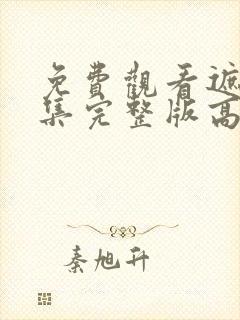 免費觀看遮
集完整版高
秦旭升